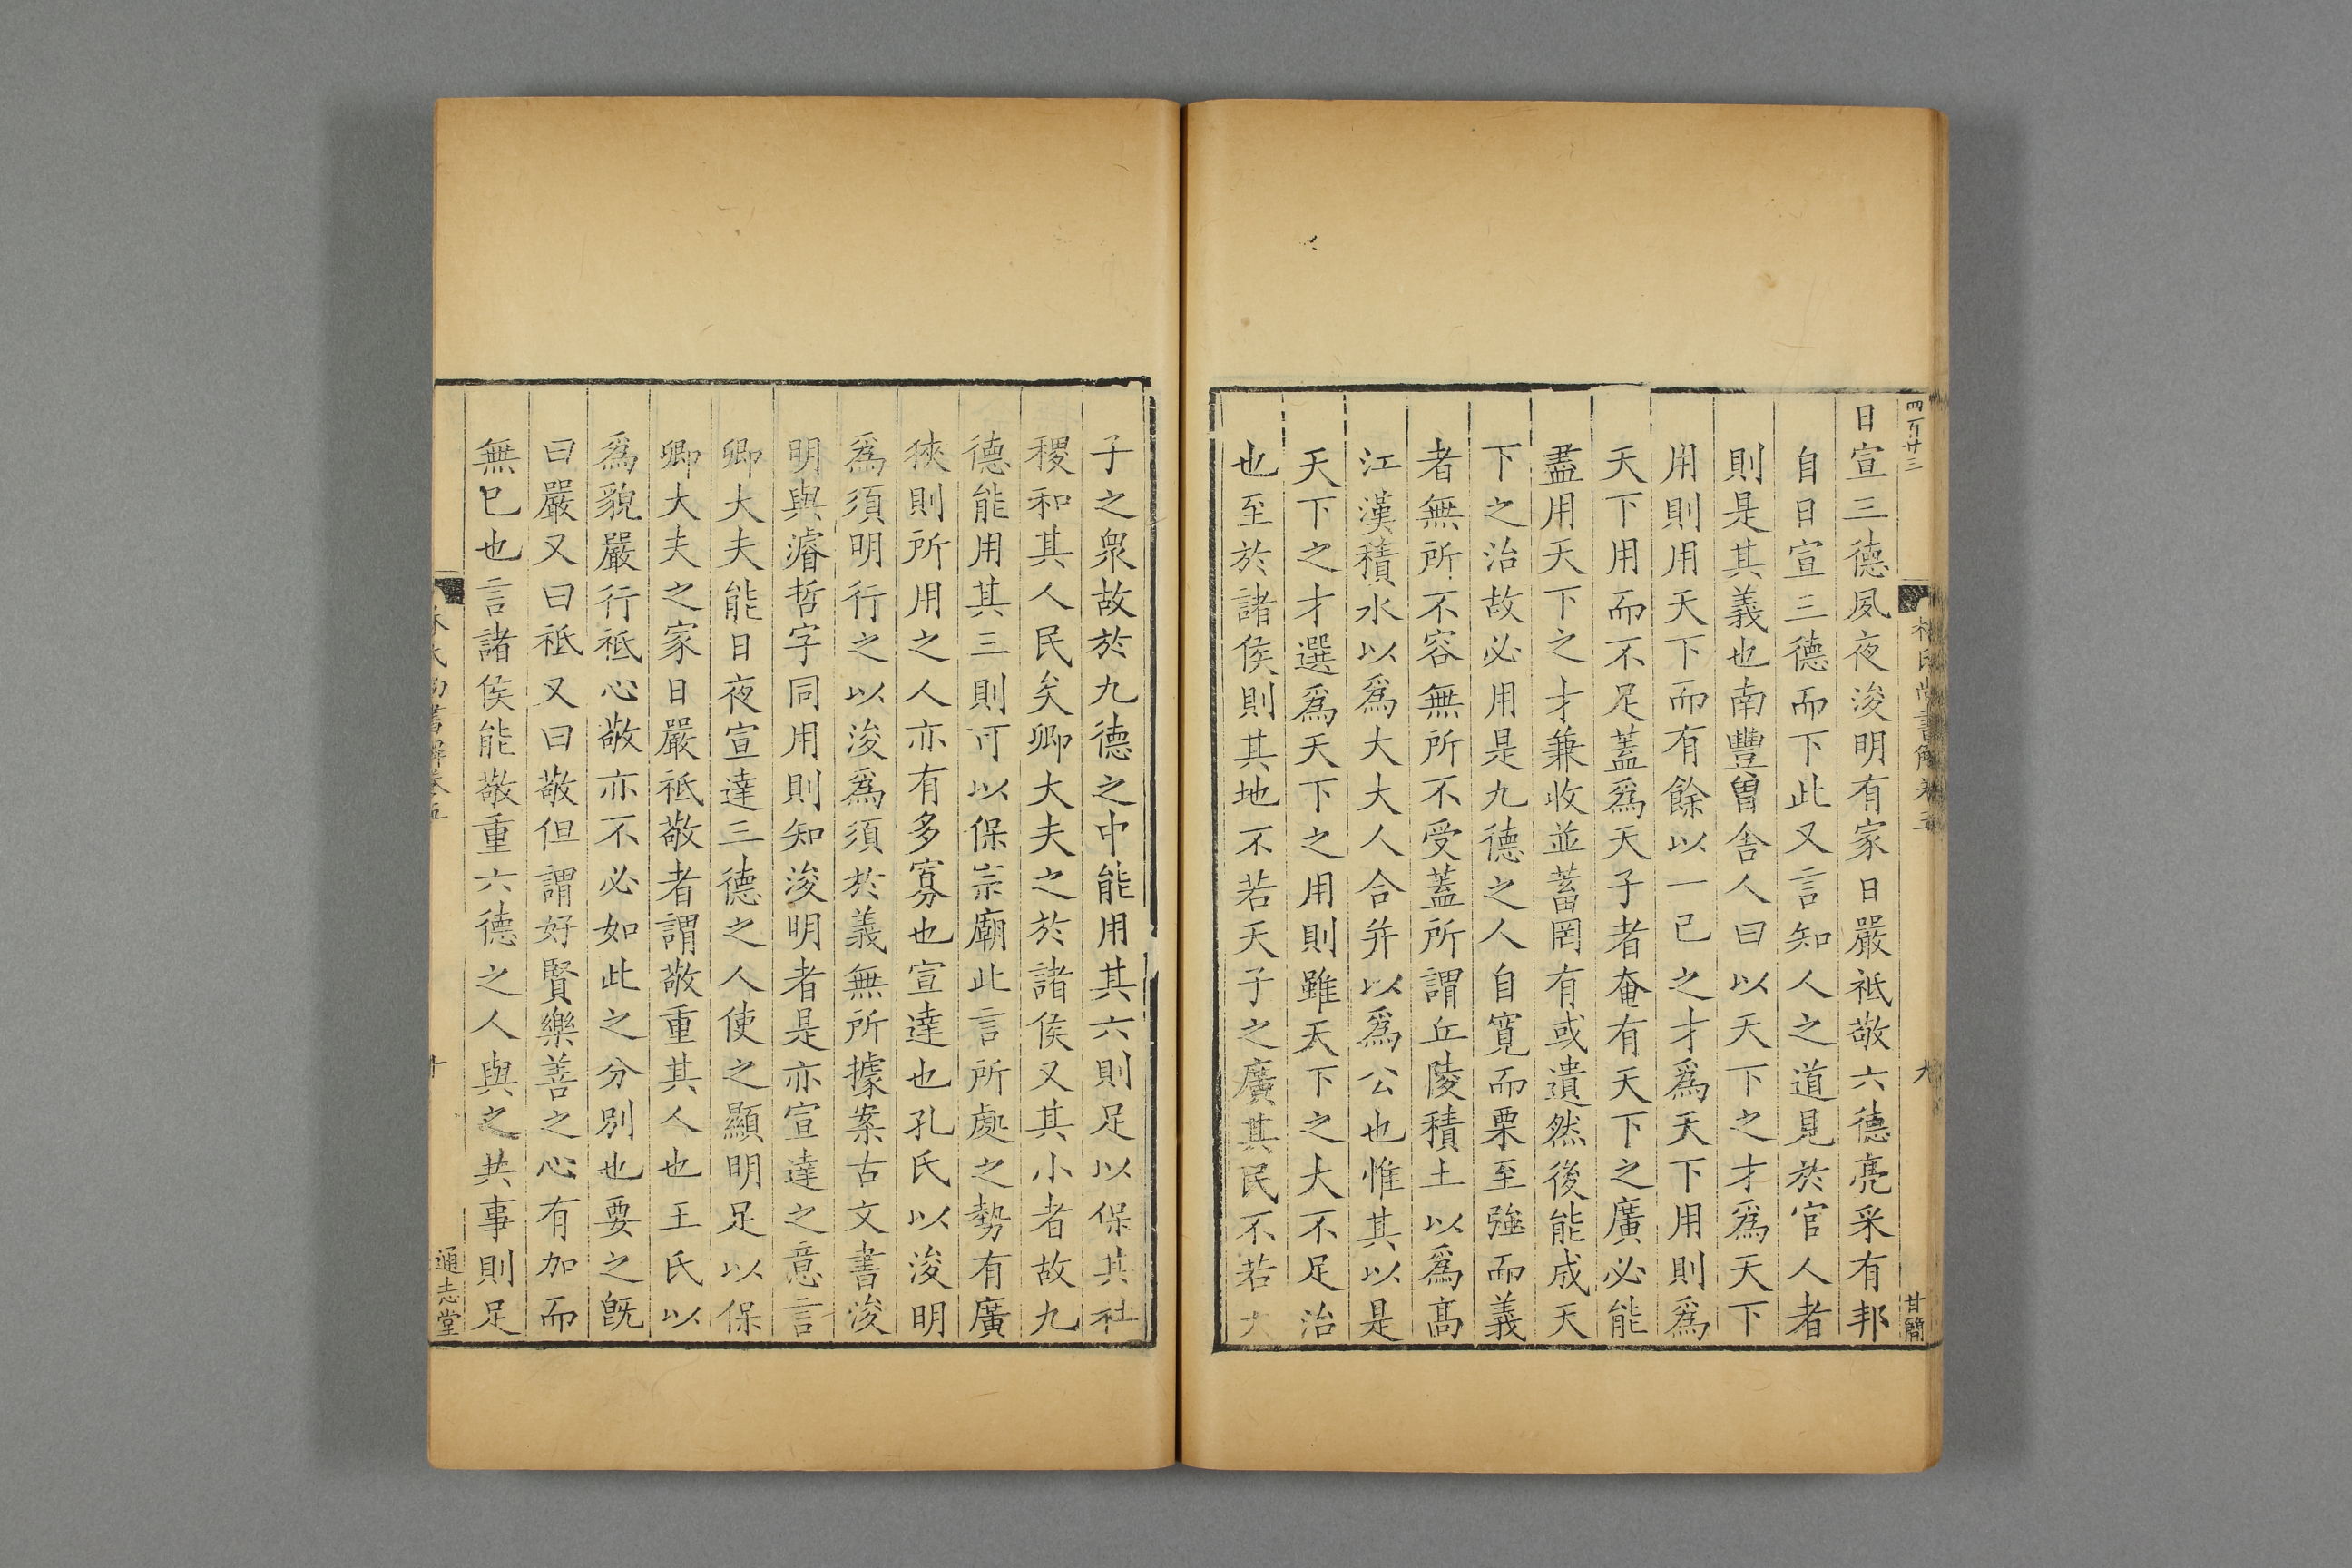 四百廿三
林氏尚書解卷五
九
甘簡
日宣三德夙夜浚明有家日嚴祗敬六德亮采有邦
自日宣三德而下此又言知人之道見於官人者
則是其義也南豐曾舍人曰以天下之才爲天下
用則用天下而有餘以一己之才爲天下用則爲
天下用而不足蓋爲天子者奄有天下之廣必能
盡用天下之才兼收並蓄罔有或遺然後能成天
下之治故必用是九德之人自寬而栗至強而義
者無所不容無所不受蓋所謂丘陵積土以爲高
江漢積水以爲大大人合并以爲公也惟其以是
天下之才選爲天下之用則雖天下之大不足治
也至於諸侯則其地不若天子之廣其民不若天
子之衆故於九德之中能用其六則足以保其社
稷和其人民矣卿大夫之於諸侯又其小者故九
德能用其三則可以保宗廟此言所處之勢有廣
狹則所用之人亦有多寡也宣達也孔氏以浚明
爲須明行之以浚爲須於義無所據案古文書浚
明與濬哲字同用則知浚明者是亦宣達之意言
卿大夫能日夜宣達三德之人使之顯明足以保
卿大夫之家日嚴祗敬者謂敬重其人也王氏以
爲貌嚴行祗心敬亦不必如此之分別也要之旣
曰嚴又曰祗又曰敬但謂好賢樂善之心有加而
無已也言諸侯能敬重六德之人與之共事則足
林氏尚書解卷五
十
通志堂